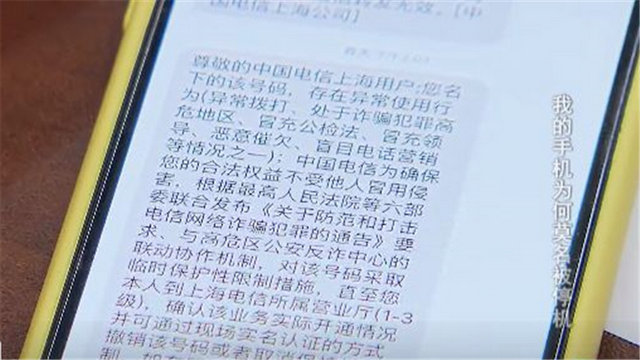 国电信上海公司]
尊敬的中国电信上海用户:您名
下的该号码，存在异常使用行
为(异常拨打、处于诈骗犯罪高
危地区、冒充公检法、冒充领
导、恶意催欠、盲目电话营销
等情况之一)；中国电信为确保
您的合法权益不受他人冒用侵
害，根据最高人民法院等六部
委联合发布《关于防范和打击
电信网络诈骗犯罪的通告》要
求、与高危区公安反诈中心的
联动协作机制，对该号码采取
临时保护性限制措施，直至您
本人到上海电信所属营业厅(1-3
级)，确认该业务实际开通情况
并可通过现场实名认证的方式
撤销该号码或者取消保
我的手机为何莫名被停机